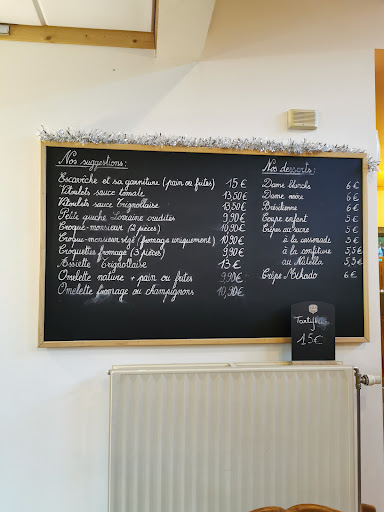 Nos suggestions:
Escavèche et sa garniture (pain ou frites) 15 €
Vitoulets sauce tomate 13,50
Vitoulets sauce Trignollaise 13,50 €
Petite quiche Lorraine crudités 9,90 €
Croque-monsieur (2 pièces) 10,90 €
Croque-monsieur végé (fromage uniquement) 10,90 €
Croquettes fromage (3 pièces) 9,90 €
Assiette Trignollaise 13 €
Omelette nature + pain ou frites 9,90 €
Omelette fromage ou champignons 10,90 €
Nos desserts:
Dame blanche 6 €
Dame noire 6 €
Brésilienne 6 €
Crêpe enfant 5 €
Crêpes au sucre 5 €
à la cassonade 5 €
à la confiture 5,5 €
au Nutella 5,5 €
Crêpe Mikado 6 €
15€